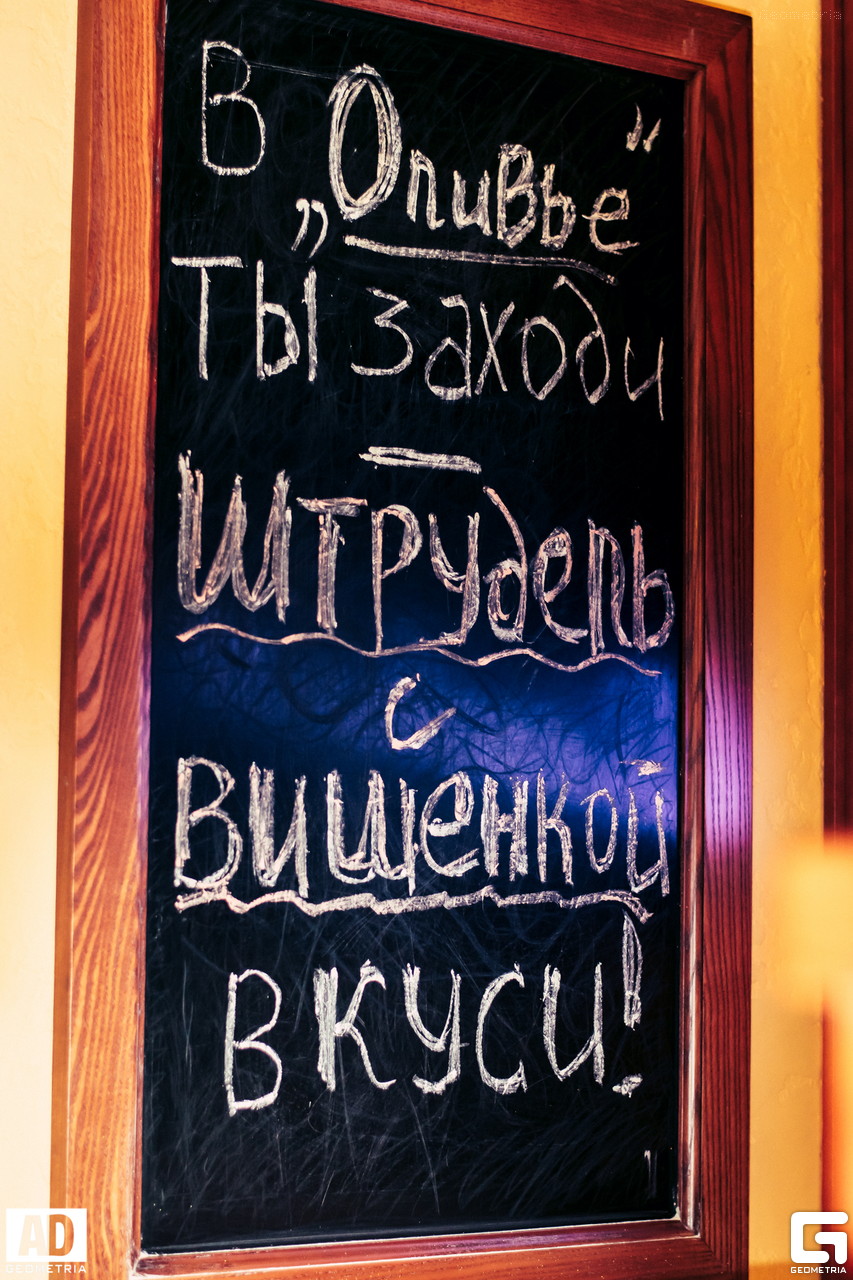 В „Оливье“
ты заходи
Штрудель
с
вишенкой
вкуси!
AD
GEOMETRIA
GEOMETRIA
geometria